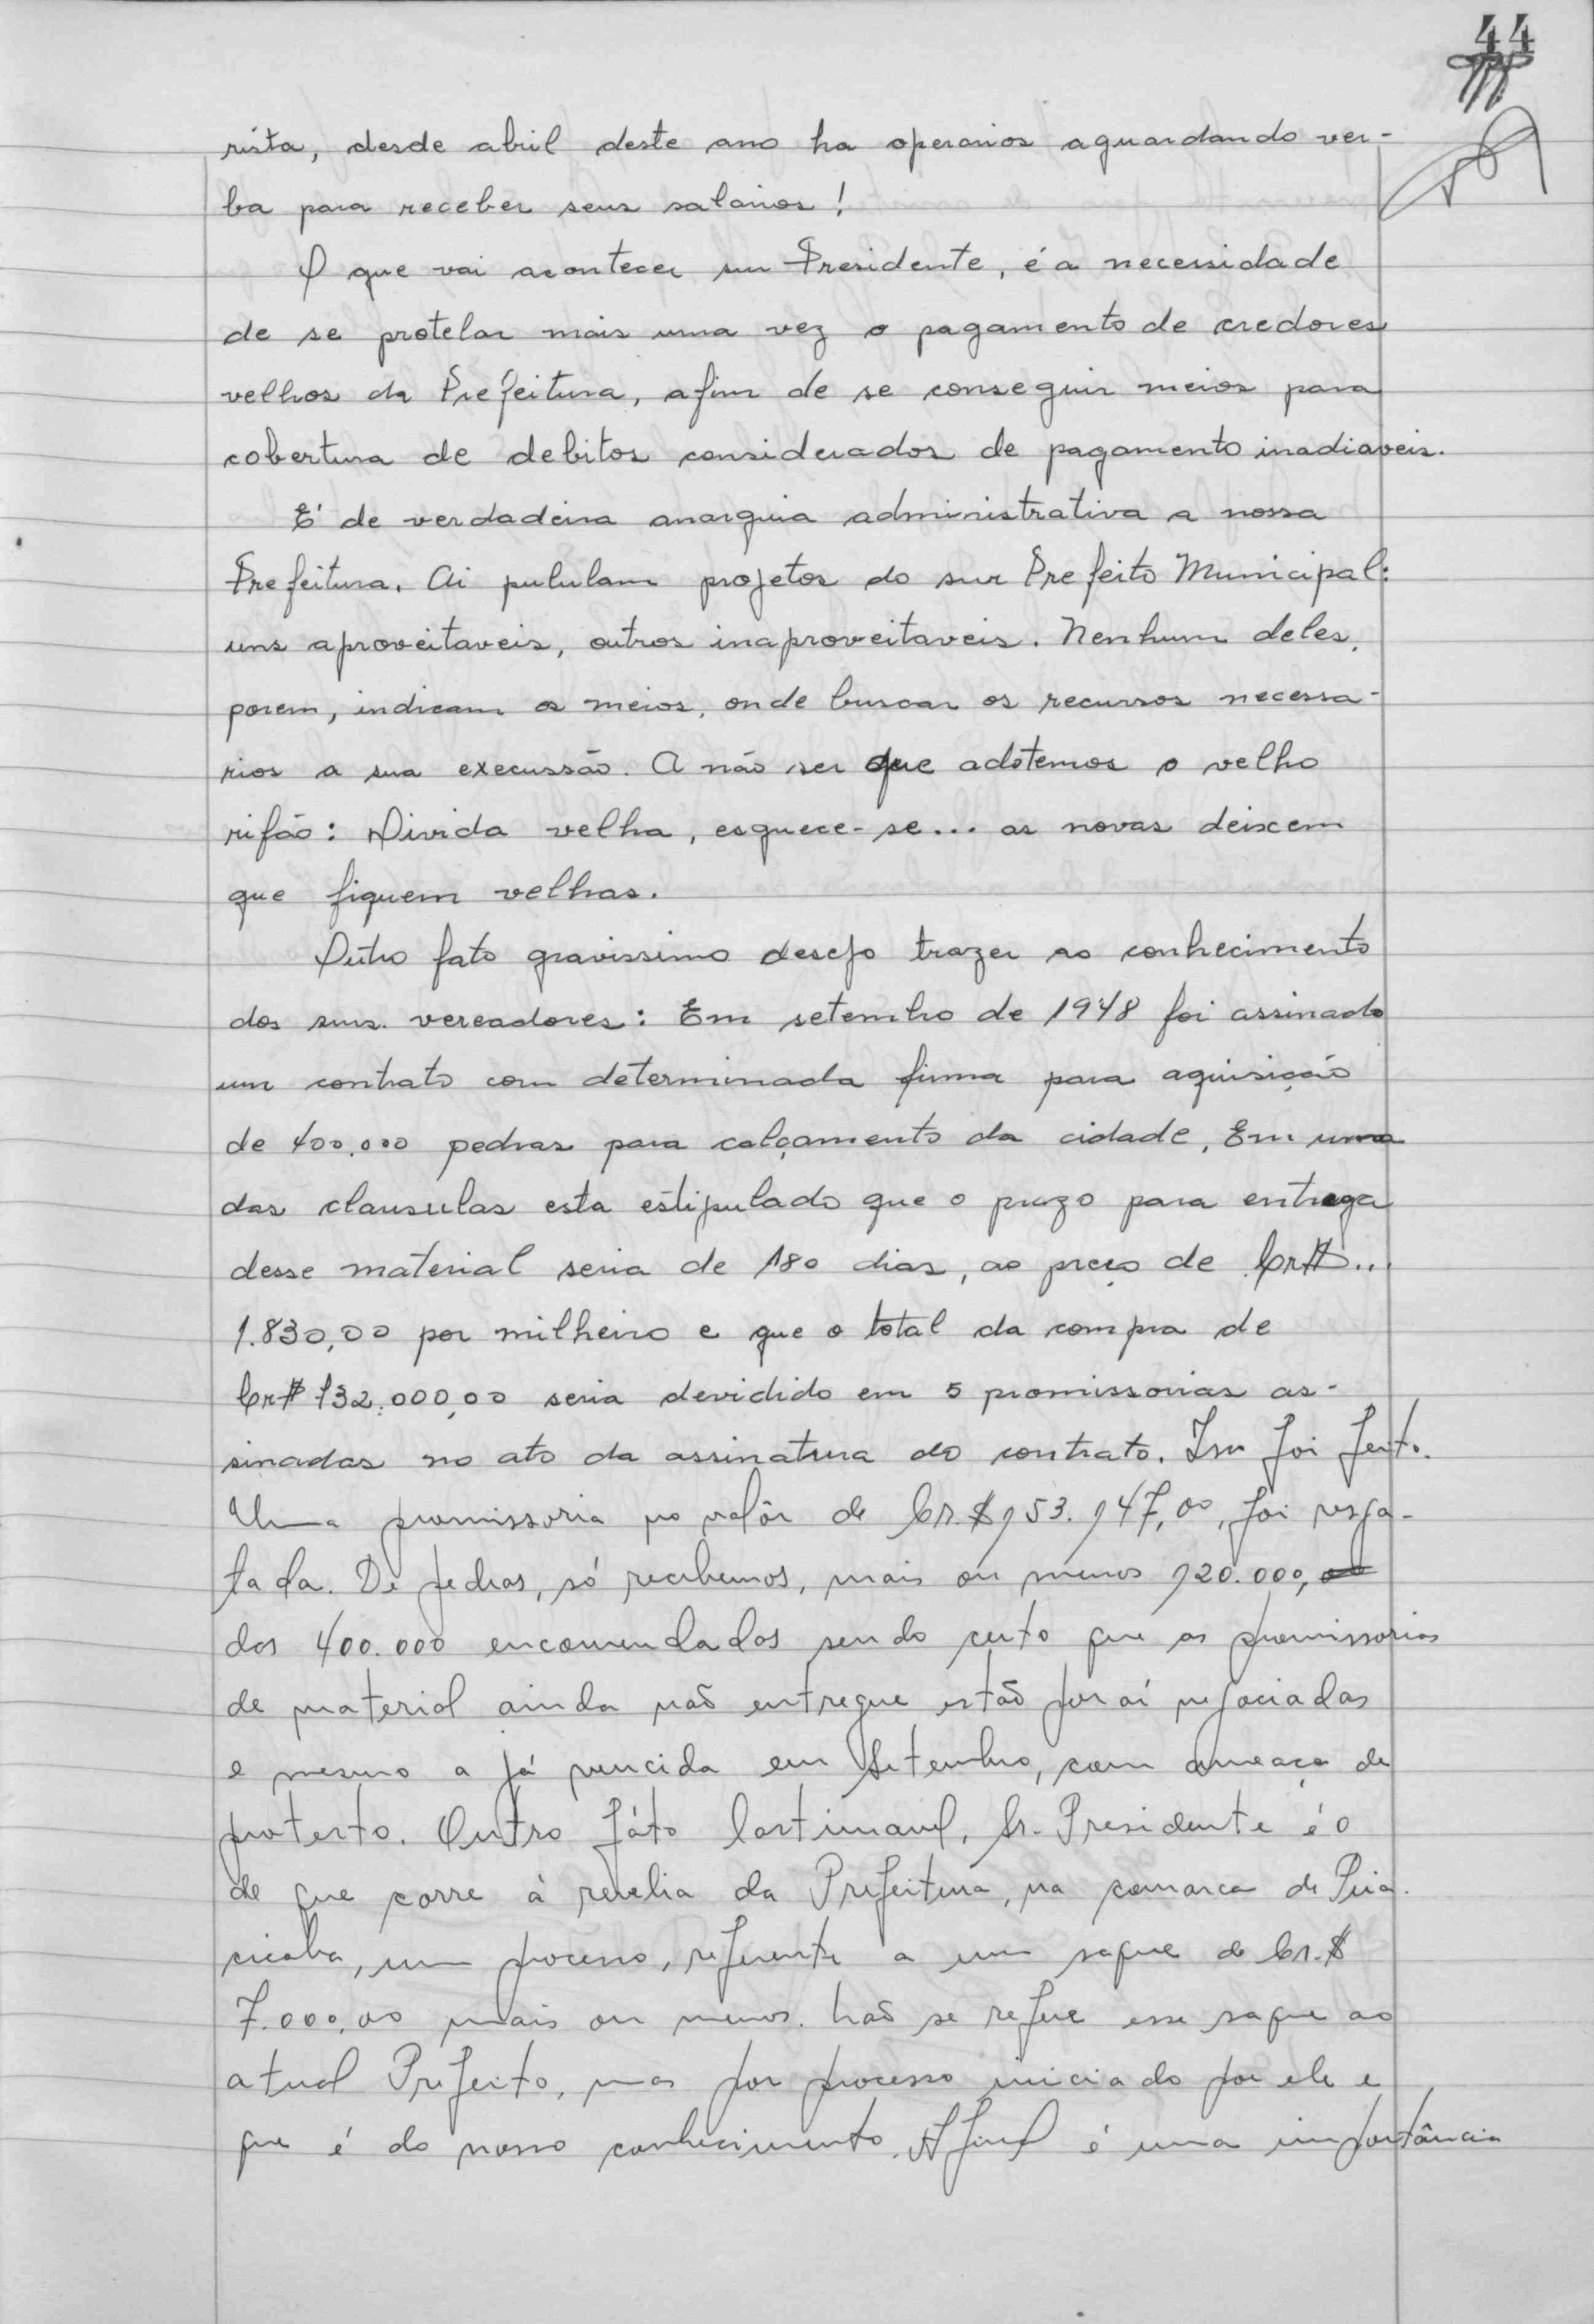 44
rista, desde abril deste ano ha operarios aguardando ver-
ba para receber seus salarios!
O que vai acontecer snr Presidente, é a necessidade
de se protelar mais uma vez o pagamento de credores
velhos da Prefeitura, afim de se conseguir meios para
cobertura de debitos considerados de pagamento inadiaveis.
E' de verdadeira anarquia administrativa a nossa
Prefeitura. Ai pululam projetos do snr Prefeito Municipal:
uns aproveitaveis, outros inaproveitaveis. Nenhum deles,
porem, indicam os meios, onde buscar os recursos necessa-
rios a sua execussão. A não ser que adotemos o velho
rifão: Divida velha, esquece-se... as novas deixem
que fiquem velhas.
Outro fato gravissimo desejo trazer ao conhecimento
dos snrs. vereadores: Em setembro de 1948 foi assinado
um contrato com determinada firma para aquisição
de 400.000 pedras para calçamento da cidade. Em uma
das clausulas esta estipulado que o prazo para entrega
desse material seria de 180 dias, ao preço de Cr$..
1.830,00 por milheiro e que o total da compra de
Cr$ 732.000,00 seria devidido em 5 promissorias as-
sinadas no ato da assinatura do contrato. Isso foi feito.
Uma promissoria no valôr de Cr.$ 153.147,00, foi resga-
tada. De pedras, só recebemos, mais ou menos 120.000,
das 400.000 encomendadas sendo certo que as promissorias
de material ainda não entregue estão por aí negociadas
e mesmo a já vencida em Setembro, com ameaça de
protesto. Outro fáto lastimavel, Sr. Presidente é o
de que corre à revelia da Prefeitura, na comarca de Pira-
cicaba, um processo, referente a um saque de Cr.$
7.000,00 mais ou menos. Não se refere esse saque ao
atual Prefeito, mas por processo iniciado por ele e
que é do nosso conhecimento. Afinal é uma importância